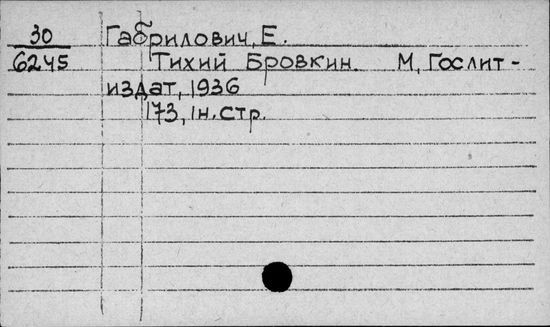 30 Габрилович, Е.
6245 Тихий Бровкин. М, Гослит-
издат, 1936
173, 1н. стр.